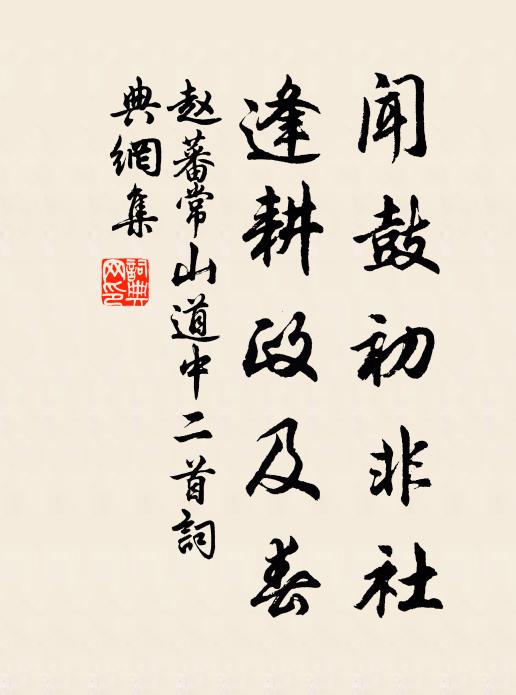 闻鼓初非社
逢耕政及春
赵蕃常山道中二首詞
典網集
詞典
网印